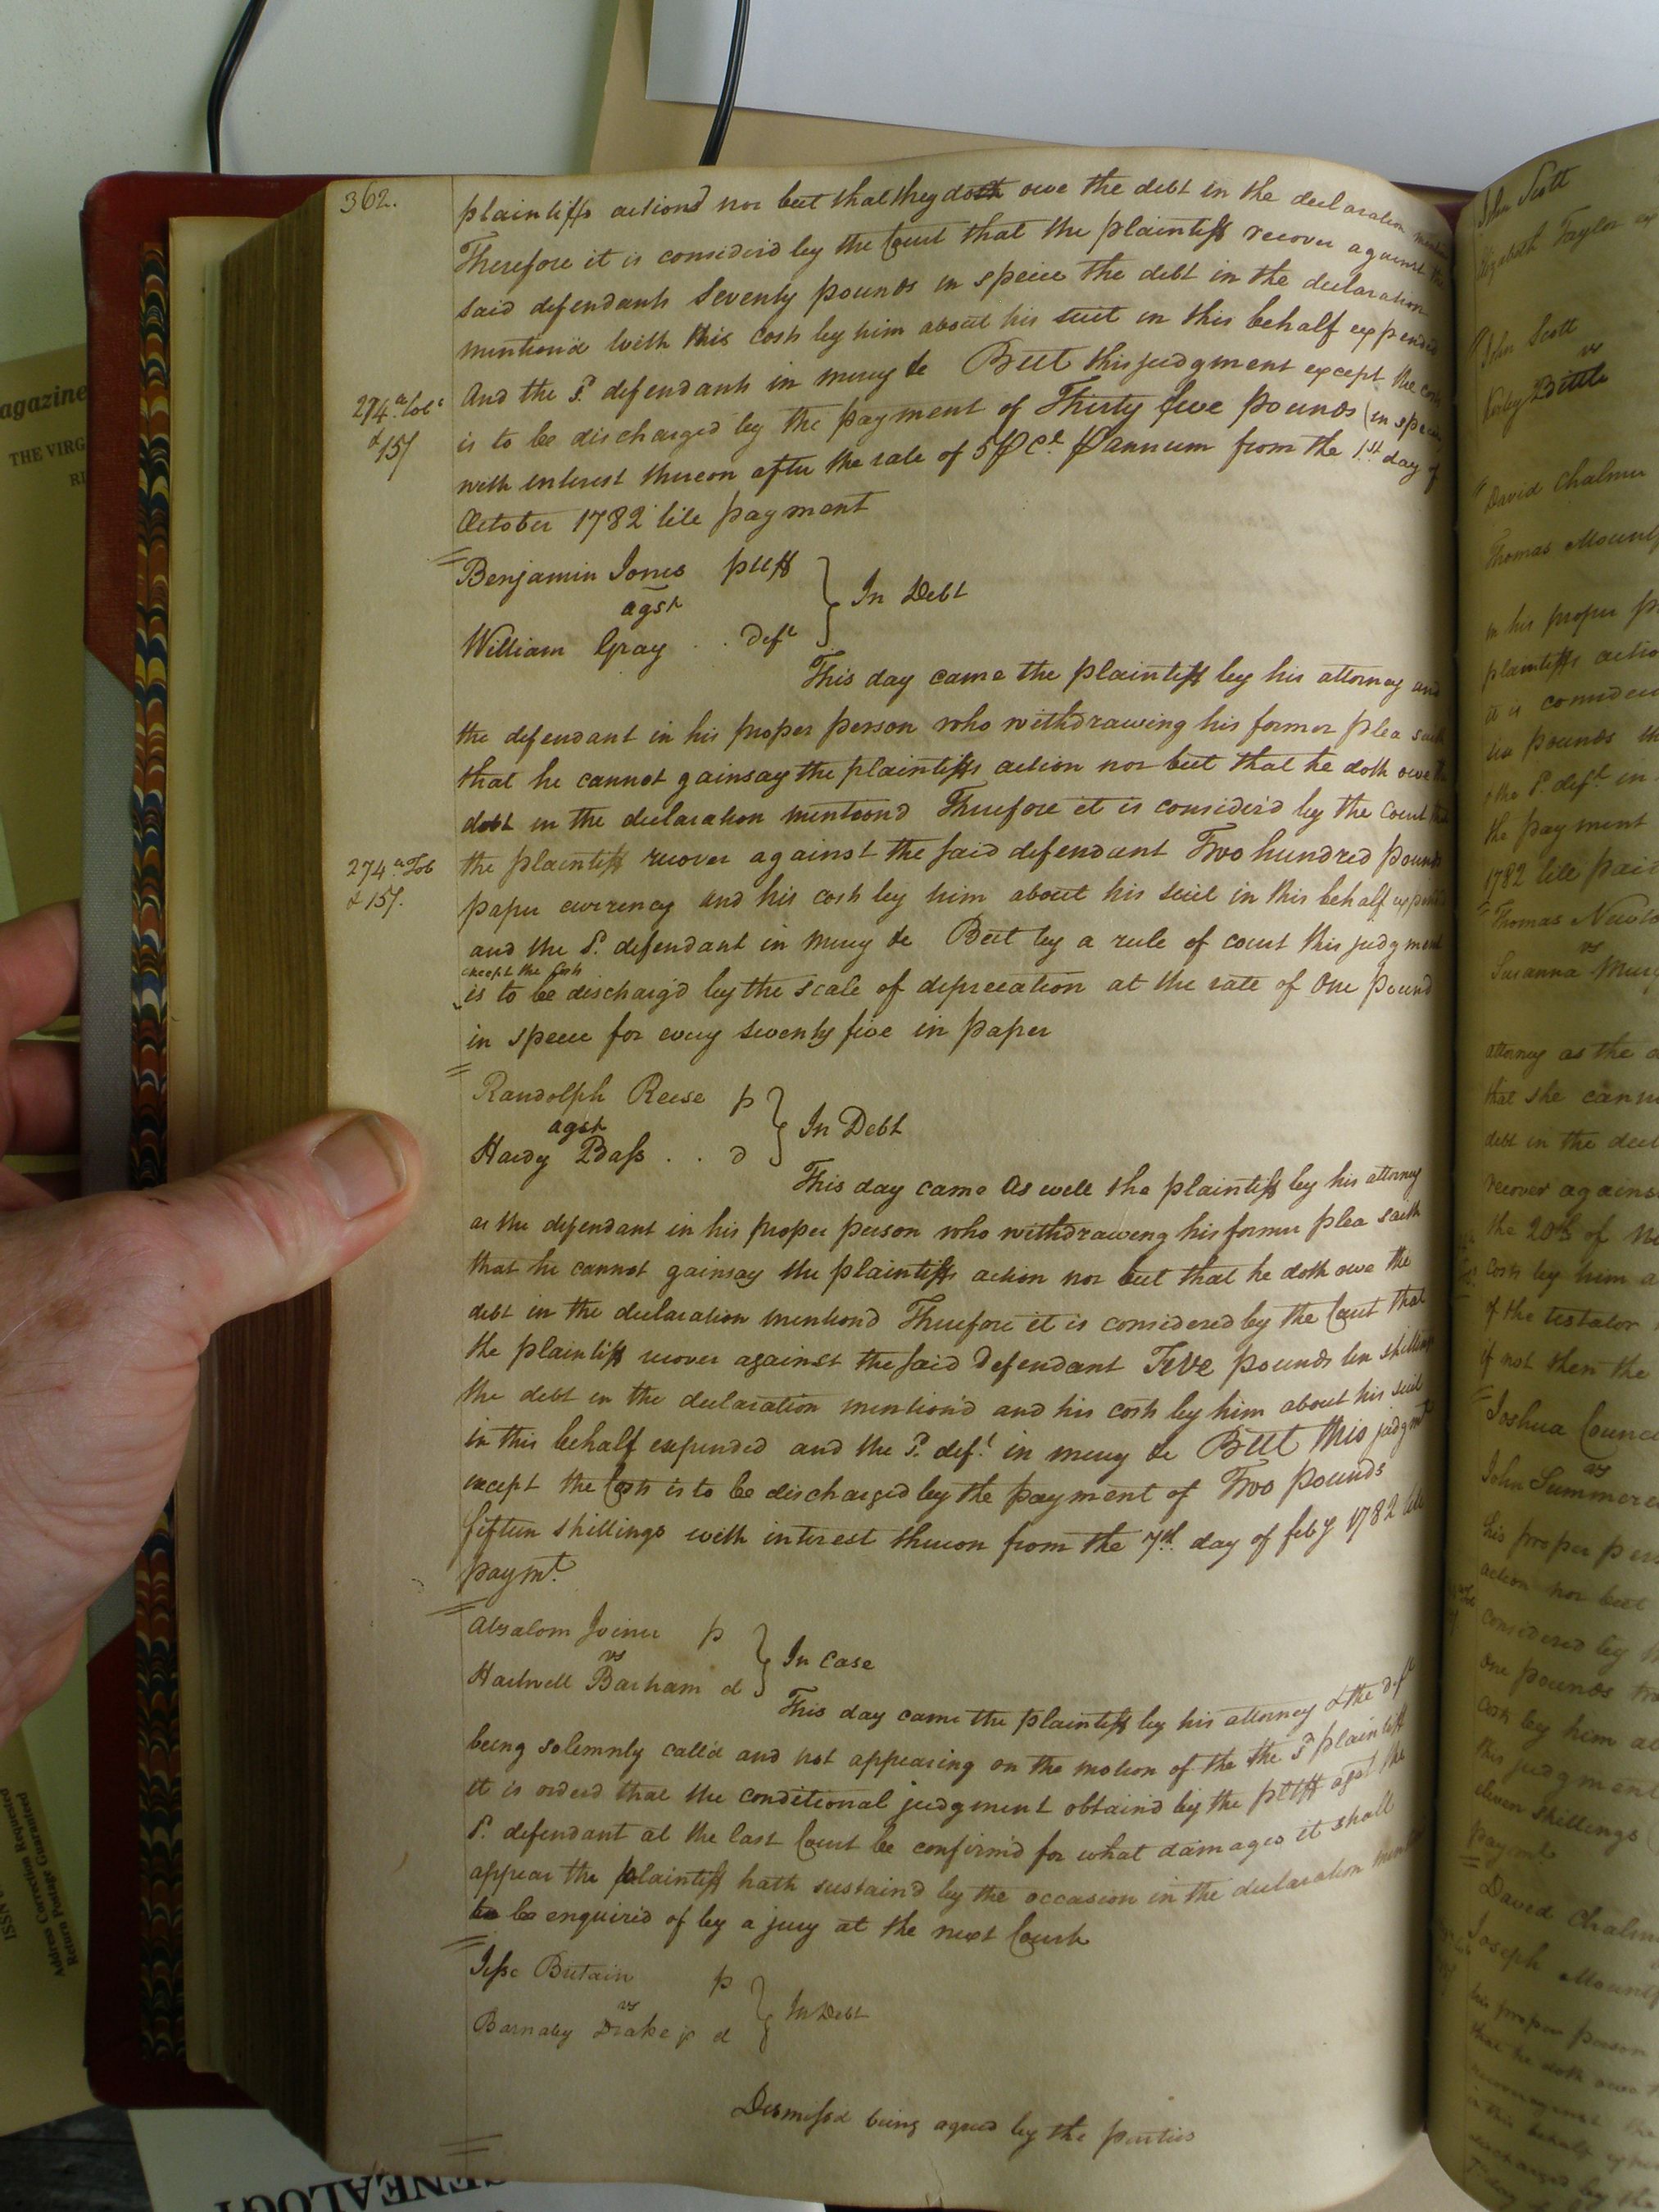 362.
plaintiffs actiond nor but that they doth owe the debt in the declaration
Therefore it is considerd by the Court that the plaintiff recover against the
said defendants Seventy pounds in speice the debt in the declaration
mention'd with his costs by him about his suit in this behalf expended
And the Sd. defendants in mercy &c But this judgment except the costs
274 a tobo
& 15/
is to be discharged by the payment of Thirty five pounds (in specie
with interest thereon after the rate of 5 ⅌ Ct ⅌ annum from the 1st day of
October 1782 till payment
Benjamin Jones pltff
agst
William Gray . . Deft
In Debt
This day came the plaintiff by his attorney and
the defendant in his proper person who withdrawing his former plea saith
that he cannot gainsay the plaintiffs action nor but that he doth owe the
debt in the declaration mentiond Therefore it is consider'd by the Court that
274 a Tob
& 15/.
the plaintiff recover against the said defendant Two hundred pounds
paper currency and his costs by him about his suit in this behalf expended
and the Sd. defendant in mercy &c But by a rule of court this judgment
except the Costs
is to be discharg'd by the scale of depreciation at the rate of One pound
in speice for every seventy five in paper
Randolph Reese p
agst
Hardy Bass . . D
In Debt
This day came as well the plaintiff by his attorney
as the defendant in his proper person who withdraweng his former plea saith
that he cannot gainsay the plaintiffs action nor but that he doth owe the
debt in the declaration mentiond Therefore it is considered by the Court that
the plaintiff recover against the said Defendant Five pounds ten shillings
the debt in the declaration mention'd and his costs by him about his suit
in this behalf expended and the Sd. deft. in mercy &c But this judgmt
except the Costs is to be discharged by the payment of Two pounds
fifteen shillings with interest thereon from the 7th. day of feby 1782 till
paymt.
Absalom Joiner p
vs
Hartwell Barham d
In Case
This day came the plaintiff by his attorney & the deft
being solemnly call'd and not appearing on the motion of the the Sd plaintiff
it is orderd that the conditional judgment obtain'd by the pltff agst the
Sd. defendant at the last Court be confirm'd for what damages it shall
appear the plaintiff hath sustain'd by the occasion in the declaration
to be enquired of by a jury at the next Court
Jesse Britain p
vs
Barnaby Drake jr d
In Debt
Dismissd being agreed by the parties
John Scott
Elizabeth Taylor
John Scott
vs
Kerby Bittle
David Chalmer
Thomas
in his proper
plaintiffs actio
it is
pounds
& the Sd. deft in
the payment
1782 till paid
Thomas
vs
Susanna
attorney as the
that she cann
debt in the decl
recover agains
the 20th of
Costs by him a
of the testator
if not then the
Joshua Counc
vs
John Summere
his proper pers
action nor but
considered by
One pounds
Costs by him a
this judgment
eleven shillings
paymt
David Chalm
Joseph
his proper person
that he doth owe
agazine
THE VIRG
RI
ISSN
Address Correction Requested
Return Postage Guaranteed
GENEALOG